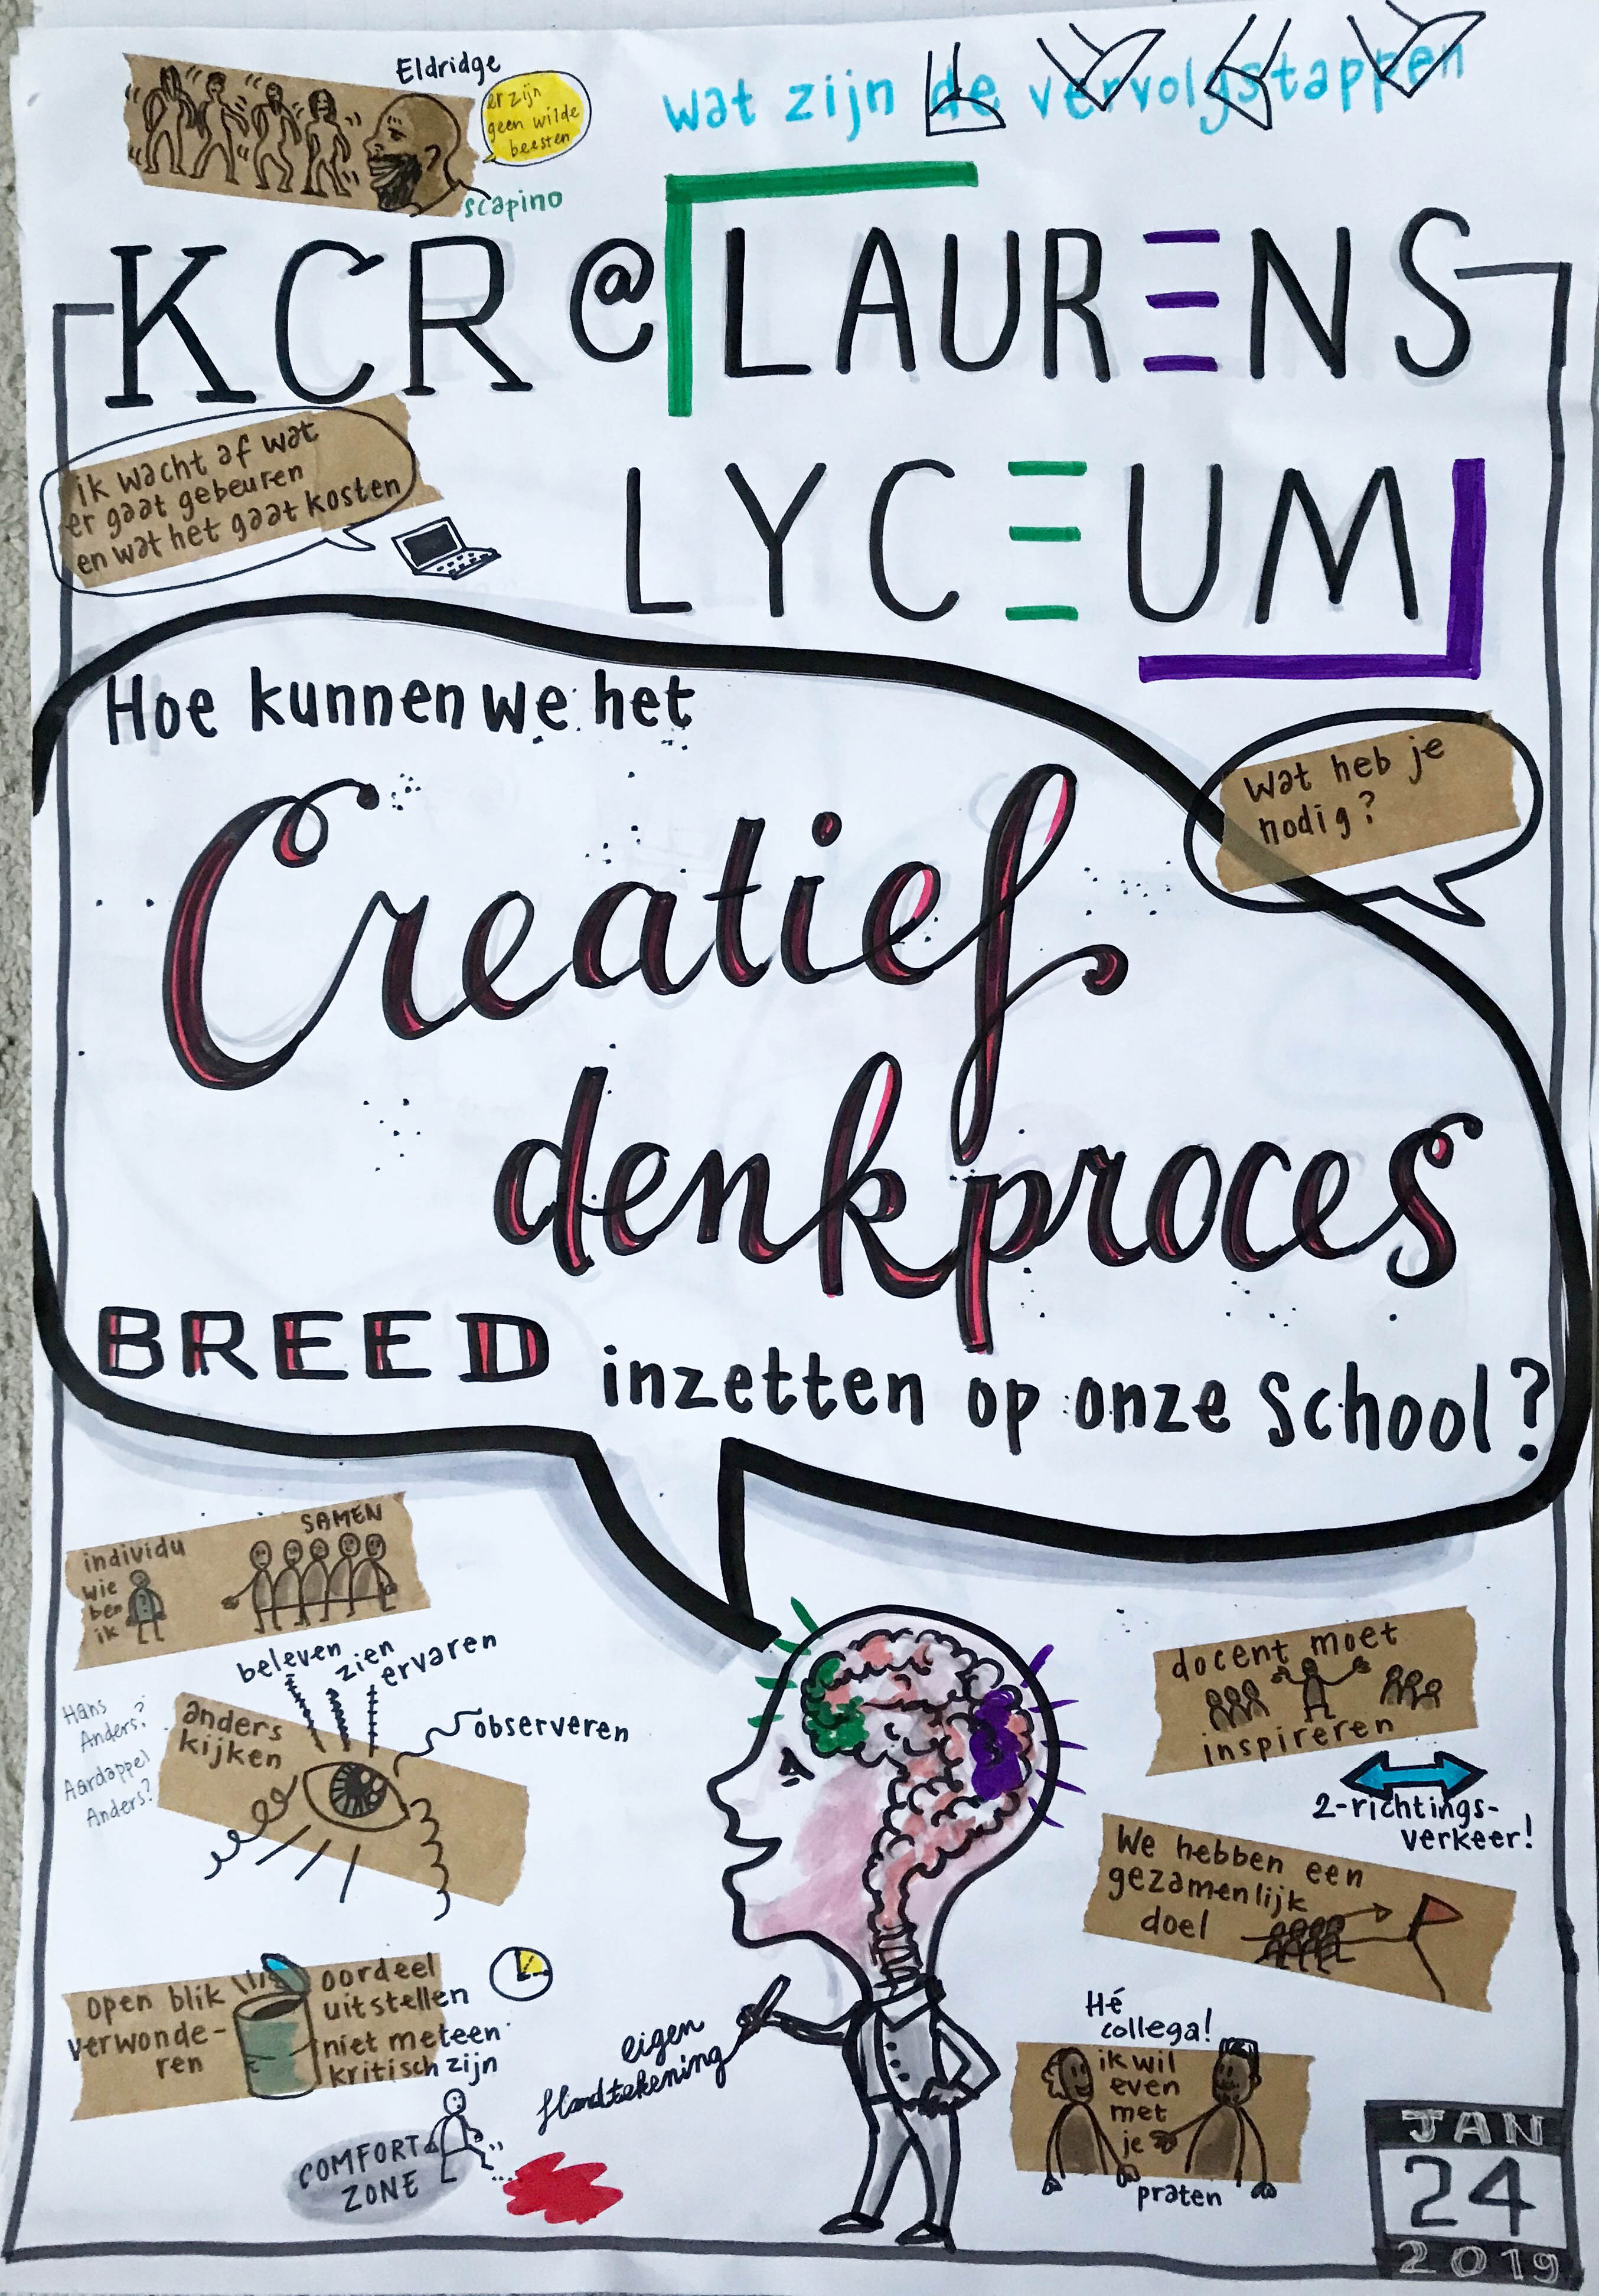 Eldridge
er zijn
geen wilde
beesten
scapino
wat zijn de vervolgstappen
KCR @ LAURENS
LYCEUM
ik wacht af wat
er gaat gebeuren
en wat het gaat kosten
Hoe kunnen we het
Creatief
denkproces
BREED inzetten op onze school?
Wat heb je
nodig?
individu
wie
ben
ik
SAMEN
beleven
zien
ervaren
observeren
Hans
Anders?
Aardappel
Anders?
anders
kijken
open blik
verwonde-
ren
oordeel
uitstellen
niet meteen
kritisch zijn
COMFORT
ZONE
eigen
Handtekening
docent moet
inspireren
2-richtings-
verkeer!
We hebben een
gezamenlijk
doel
Hé
collega!
ik wil
even
met
je
praten
JAN
24
2019